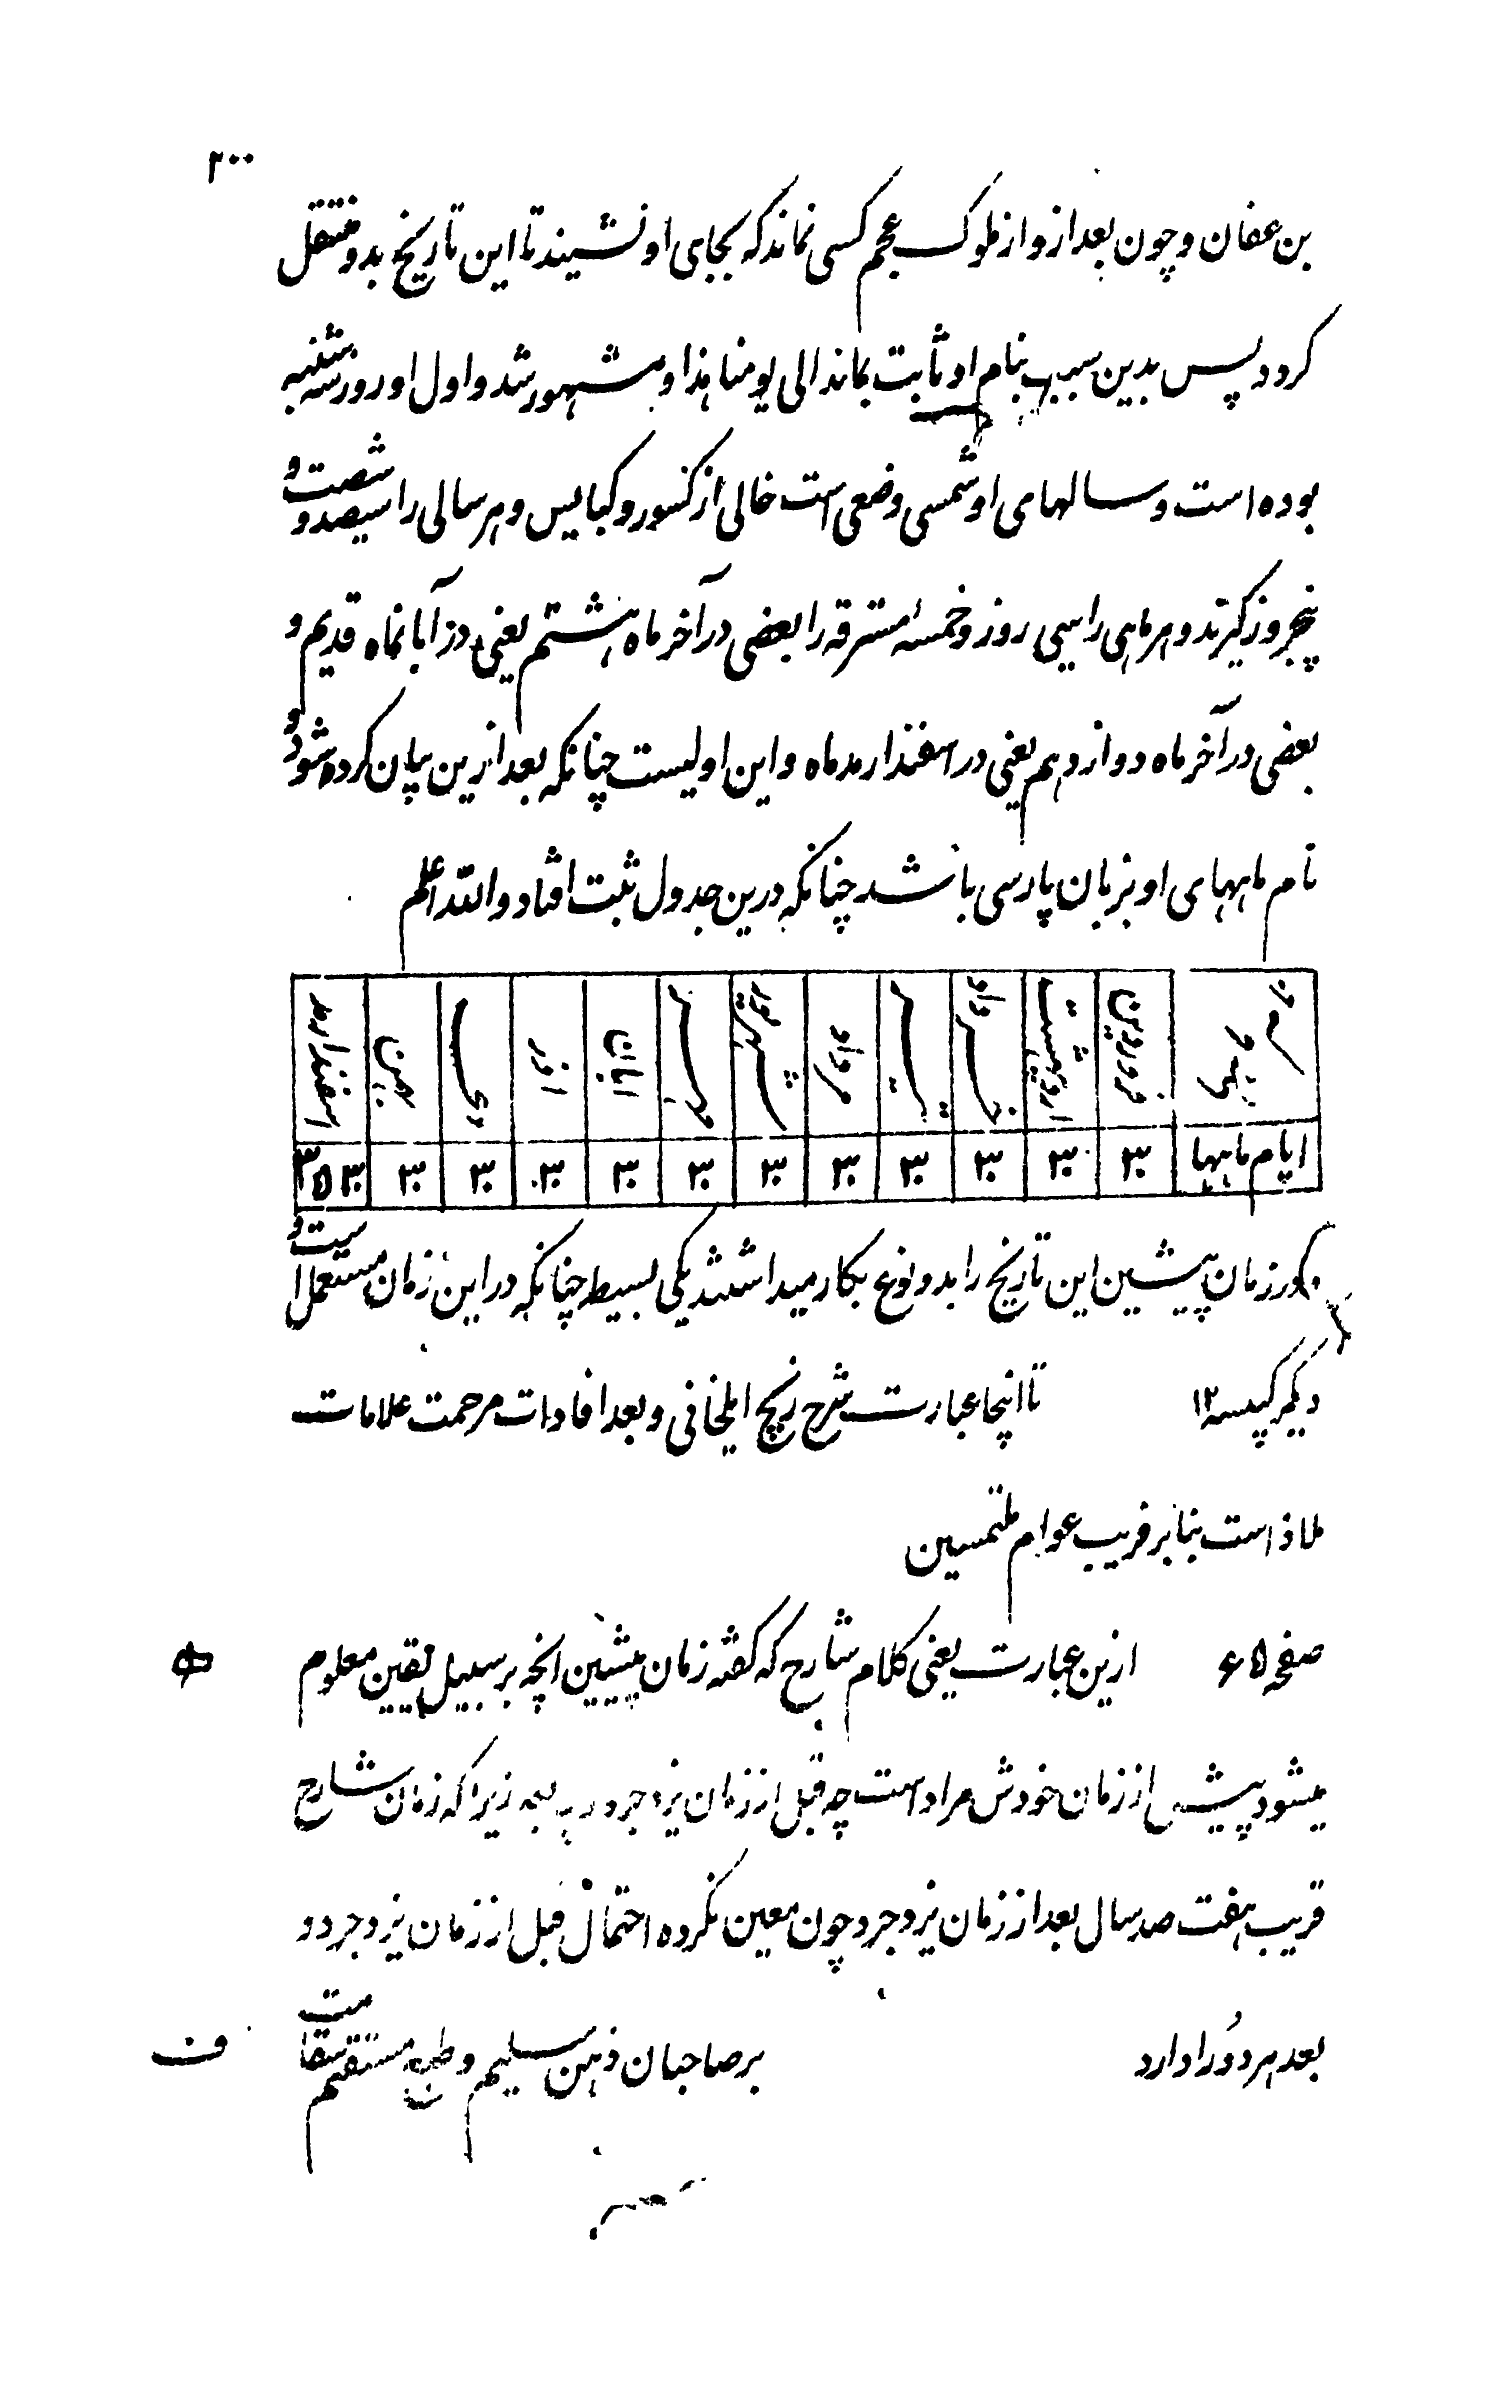 ۲۰۰
بن عفان و چون بعد از و از ملوک عجم کسی نماند که بجای او نشیند تا این تاریخ بدو منتقل
گردد پس بدین سبب بنام او ثابت بماند الی یومنا هذا و مشهور شد و اول او روز سه شنبه
بوده است و سالهای او شمسی وضعی است خالی از کسور و کبایس و هر سالی را سیصد و شصت و
پنجروز گیرند و هر ماهی را سی روز و خمسه مسترقه را بعضی در آخر ماه هشتم یعنی در آبانماه قدیم و
بعضی در آخر ماه دوازدهم یعنی در اسفندارمدماه و این اولیست چنانکه بعد ازین بیان کرده شود و
نام ماههای او بزبان پارسی باشد چنانکه درین جدول ثبت افتاد والله اعلم
فروردین اردیبهشت خرداد تیر مرداد شهریور مهر ابان اذر دی بهمن اسفندارمد
ایام ماهها ۳۰ ۳۰ ۳۰ ۳۰ ۳۰ ۳۰ ۳۰ ۳۰ ۳۰ ۳۰ ۳۰ ۳۰ ۵ ۳
در زمان پیشین این تاریخ را بدو نوع بکار میداشتند یکی بسیط چنانکه در این زمان مستعمل است و
دیگر کبیسه ۱۲ تا اینجا عبارت شرح زیچ ایلخانی و بعد افادات مرحمت علامات
ملاذ است بنا بر فریب عوام ملتمسین
صفحه ۶۵ ازین عبارت یعنی کلام شارح که گفته زمان پیشین انچه بر سبیل یقین معلوم
میشود پیش از زمان خودش مراد است چه قبل از زمان یزدجرد چه بعد زیرا که زمان شارح
قریب هفت صد سال بعد از زمان یزدجرد چون معین نکرده احتمال قبل از زمان یزدجرد و
بعد هر دو را دارد بر صاحبان ذهن سلیم و مستقیم
ف